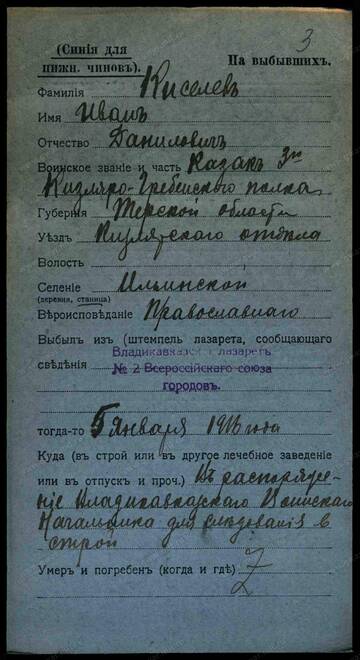 3
(Синія для
нижн. чиновъ).
На выбывшихъ.
Фамилія Киселевъ
Имя Иванъ
Отчество Даниловичъ
Воинское званіе и часть Казакъ 3го
Кизляро-Гребенскаго полка
Губернія Терской области
Уѣздъ Кизлярскаго отдѣла
Волость
Селеніе Ильинской
(деревня, станица)
Вѣроисповѣданіе Православнаго
Выбылъ изъ (штемпель лазарета, сообщающаго
свѣдѣнія
Владикавказск лазаретъ
№ 2 Всероссійскаго союза
городовъ.
тогда-то 5 Января 1916 года
Куда (въ строй или въ другое лечебное заведеніе
или въ отпускъ и проч.) Въ распоряже-
ніе Владикавказскаго Воинскаго
Начальника для слѣдованія в
строй
Умеръ и погребенъ (когда и гдѣ)